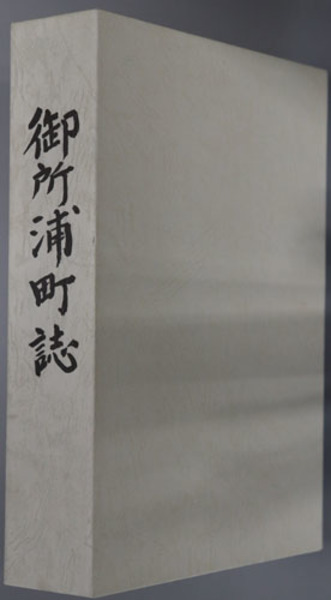 御所浦町誌